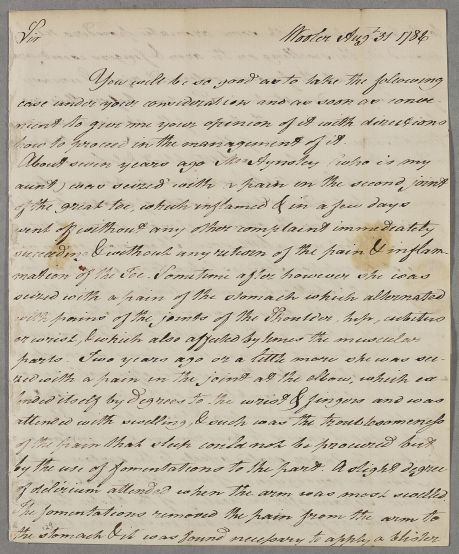 Sir
Wooler Augt. 31 1786
You will be so good as to take the following
case under your consideration and as soon as conve-
nient to give me your opinion of it with directions
how to proceed in the management of it.
About seven years ago Mrs Aynsley (who is my
aunt) was seized with a pain in the second joint
of the great toe, which inflamed & in a few days
went of without any other complaint immediately
succeedg. & without any return of the pain & inflam-
mation of the Toe. Sometime after however she was
seized with a pain of the stomach which alternated
with pains of the joints of the shoulder, hip, cubitus
or wrist, & which also affected by turns the muscular
parts. Two years ago or a little more she was sei-
zed with a pain in the joint at the elbow, which ex
tended itself by degrees to the wrist & fingers and was
attended with swelling, & such was the troublesomeness
of the pain that sleep could not be procured but
by the use of fomentations to the part. A slight degree
of delirium attended when the arm was most swelled
The fomentations removed the pain from the arm to
the stomach & it was found necessary to apply a blister